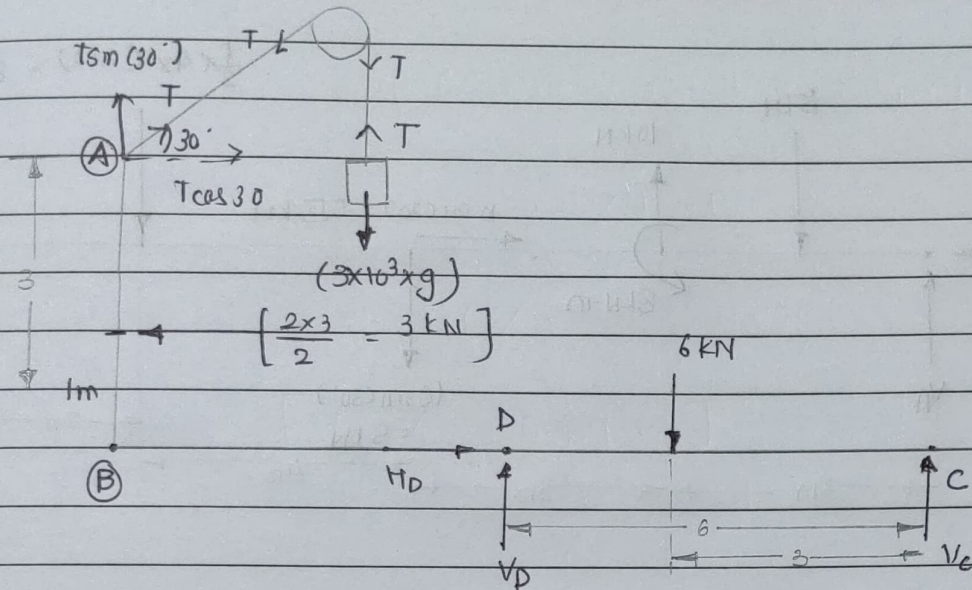 T
Tsin(30°)
T
T
T
30°
A
Tcos30
3
(3×10³×g)
[2×3/2 = 3 KN]
6 KN
1m
D
B
HD
C
6
3
VD
VC